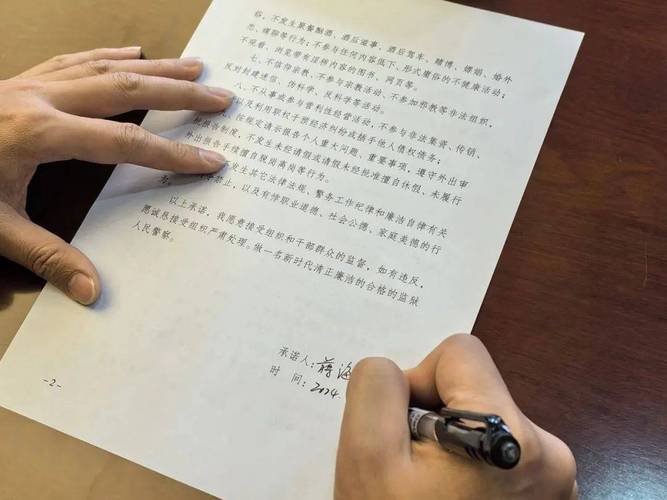 临，不发生聚餐酗酒、酒后滋事、酒后驾车、赌博、嫖娼、婚外
恋、嫖宿等行为；不参与任何内容低下、形式庸俗的不健康活动；
不观看、浏览带有淫秽内容的图书、网页等。
七、不信仰宗教、不参与宗教活动、不参加邪教等非法组织，
反对封建迷信、伪科学、反科学等活动。
八、不从事或参与营利性经营活动，不参与非法集资、传销、
以及利用职权干预经济纠纷或插手他人债权债务；
按规定请示报告个人重大问题、重要事项，遵守外出审
报告制度，不发生未经请假或请假未经批准擅自休假、未履行
外出报告手续擅自脱岗离岗等行为。
发生其它法律法规、警务工作纪律和廉洁自律有关
禁止，以及有悖职业道德、社会公德、家庭美德的行
为。
以上承诺，我愿意接受组织和干部群众的监督，如有违反，
愿诚恳接受组织严肃处理。做一名新时代清正廉洁的合格的监狱
人民警察。
承诺人：蒋海
时 间：2024.
-2-